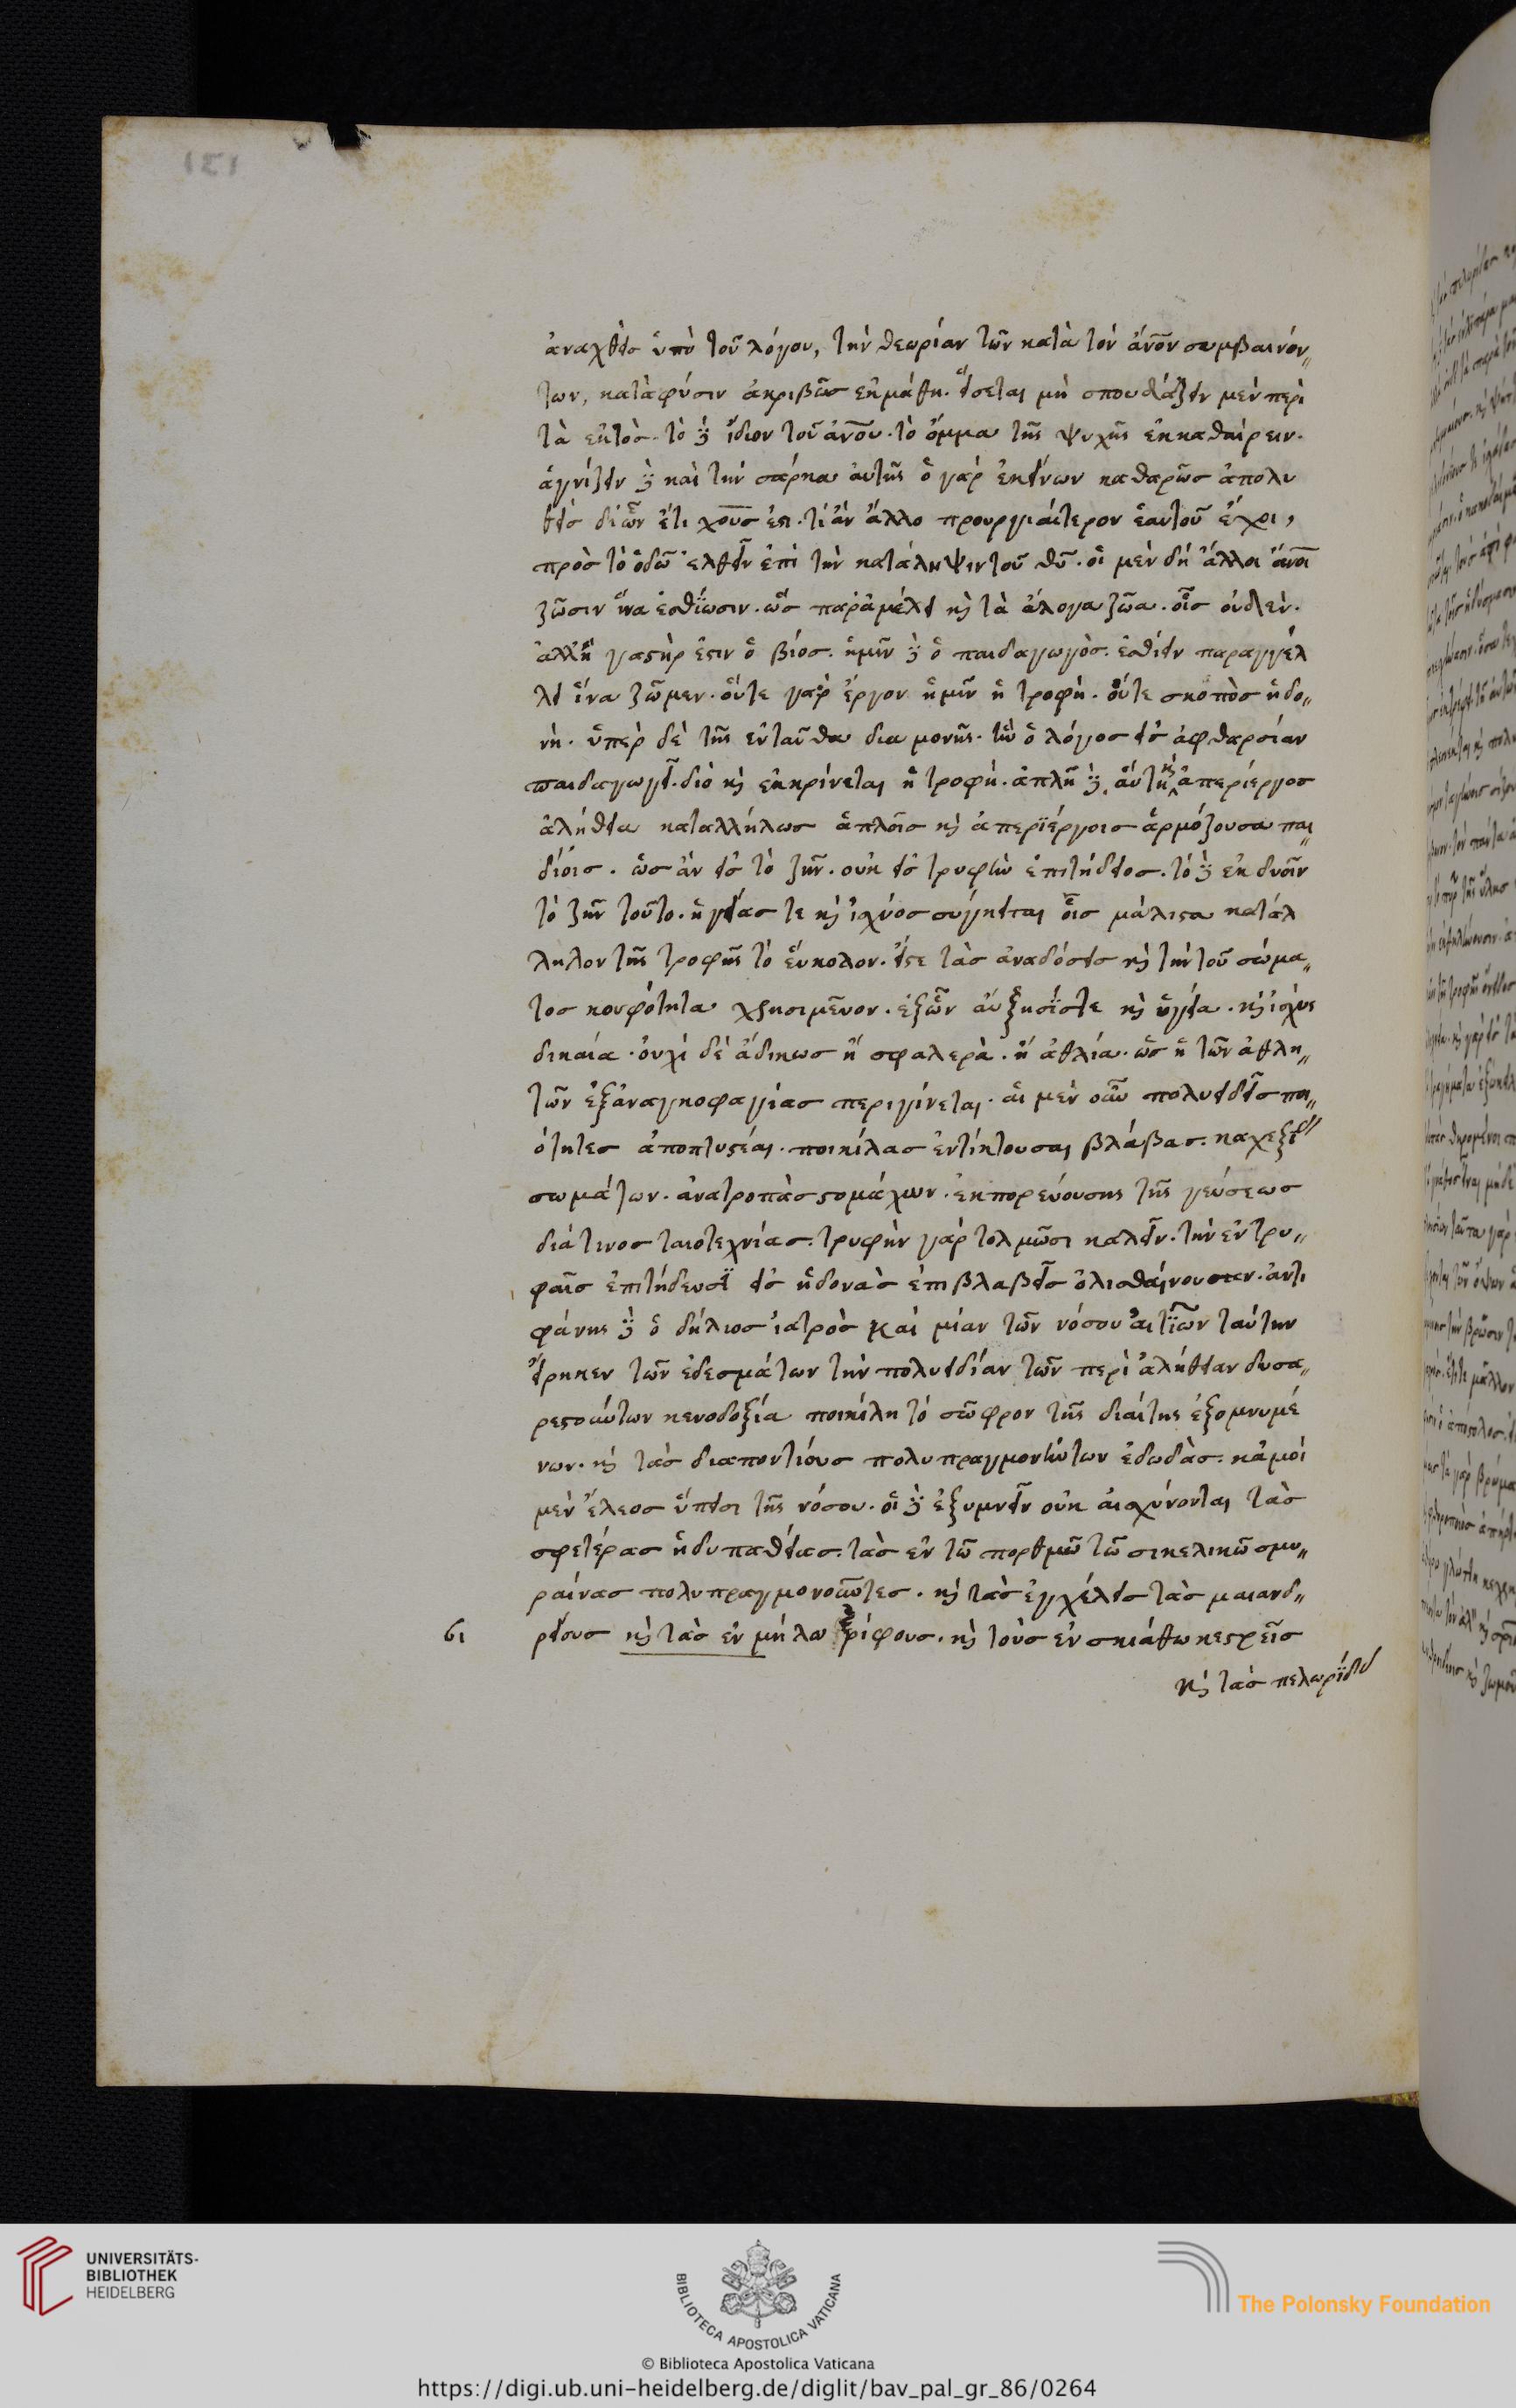 151
ἀναχθεὶς ὑπὸ τοῦ λόγου, τὴν θεωρίαν τῶν κατὰ τὸν ἄνον συμβαινόν„
των, κατὰ φύσιν ἀκριβῶς ἐκμάθῃ. ἔσεται μὴ σπουδάζειν μὲν περὶ
τὰ ἐκτὸς. τὸ δὲ ἴδιον τοῦ ἀνου. τὸ ὄμμα τῆς ψυχῆς ἐκκαθαίρειν.
ἁγνίζειν δὲ καὶ τὴν σάρκα αὐτῆς ὁ γὰρ ἐκείνων καθαρῶς ἀπολυ
θεὶς δι ὧν ἔτι χοῦς ἐστι. τί ἂν ἄλλο προυργιαίτερον ἑαυτοῦ ἔχοι,
πρὸς τὸ ὁδῶ ἐλθεῖν ἐπὶ τὴν κατάληψιν τοῦ θυ. οἱ μὲν δὴ ἄλλοι ἄνοι
ζῶσιν ἵνα ἐσθίωσιν. ὡς παρἀμέλει κὶ τὰ ἄλογα ζῶα. οἷς οὐδὲν.
ἀλλἢ γαστήρ ἐστιν ὁ βίος. ἡμῖν δὲ ὁ παιδαγωγὸς. ἐσθίειν παραγγέλ
λει ἵνα ζῶμεν. οὔτε γὰρ ἔργον ἡμῖν ἡ τροφὴ. οὔτε σκοπὸς ἡδο„
νὴ. ὑπὲρ δὲ τῆς ἐνταῦθα δια μονῆς. ἣν ὁ λόγος εἰς ἀφθαρσίαν
παιδαγωγεῖ. διὸ κὶ ἐκκρίνεται ἡ τροφὴ. ἁπλῆ δὲ αὕτη κὶ ἀπερίεργος
ἀλήθεια καταλλήλως ἁπλοῖς κὶ ἀπεριέργοις ἁρμόζουσα παι„
δίοις. ὡς ἂν εἰς τὸ ζῆν. οὐκ εἰς τρυφὴν ἐπιτήδειος. τὸ δὲ ἐκ δυοῖν
τὸ ζῆν τοῦτο. ὑγείας τε κὶ ἰσχύος σύγκειται οἷς μάλιστα κατάλ
ληλον τῆς τροφῆς τὸ εὔκολον. εἴς τε τὰς ἀναδόσεις κὶ τὴν τοῦ σώμα„
τος κουφότητα χρησιμεῦον. ἐξ ὧν αὔξησίς τε κὶ ὑγεία. κὶ ἰσχὺς
δικαία. οὐχὶ δὲ ἄδικος ἢ σφαλερὰ. ἢ ἀθλία. ὡς ἡ τῶν ἀθλη„
τῶν ἐξἀναγκοφαγίας περιγίνεται. αἱ μὲν οὖν πολυειδεῖς ποι„
ότητες ἀποπτυστέαι. ποικίλας ἐντίκτουσαι βλάβας. καχεξί
σωμάτων. ἀνατροπὰς στομάχων. ἐκπορευούσης τῆς γεύσεως
διά τινος ταιοτεχνίας. τρυφὴν γὰρ τολμῶσι καλεῖν. τὴν ἐν τρυ„
φαῖς ἐπιτήδευσϊ εἰς ἡδονὰς ἐπιβλαβεῖς ὀλισθαίνουσαν. ἀντι
φάνης δὲ ὁ δήλιος ἰατρὸς καὶ μίαν τῶν νόσου αἰτϊῶν ταύτην
εἴρηκεν τῶν ἐδεσμάτων τὴν πολυειδίαν τῶν περὶ ἀλήθειαν δυσα„
ρεστούντων κενοδοξία ποικίλη τὸ σῶφρον τῆς διαίτης ἐξομνυμέ
νων. κὶ τὰς διαποντίους πολυπραγμονούντων ἐδωδὰς. κἀμοὶ
μὲν ἔλεος ὕπεισι τῆς νόσου. οἱ δὲ ἐξυμνεῖν οὐκ αἰσχύνονται τὰς
σφετέρας ἡδυπαθείας. τὰς ἐν τῶ πορθμῶ τῶ σικελικῶ σμυ„
ραίνας πολυπραγμονοῦντες. κὶ τὰς ἐγχέλεις τὰς μαιανδ„
ρείους κὶ τὰς ἐν μήλω ἐρίφους. κὶ τοὺς ἐν σκιάθω κεστρεῖς
κὶ τὰς πελωρίδας
UNIVERSITÄTS-
BIBLIOTHEK
HEIDELBERG
BIBLIOTECA APOSTOLICA VATICANA
The Polonsky Foundation
© Biblioteca Apostolica Vaticana
https://digi.ub.uni-heidelberg.de/diglit/bav_pal_gr_86/0264